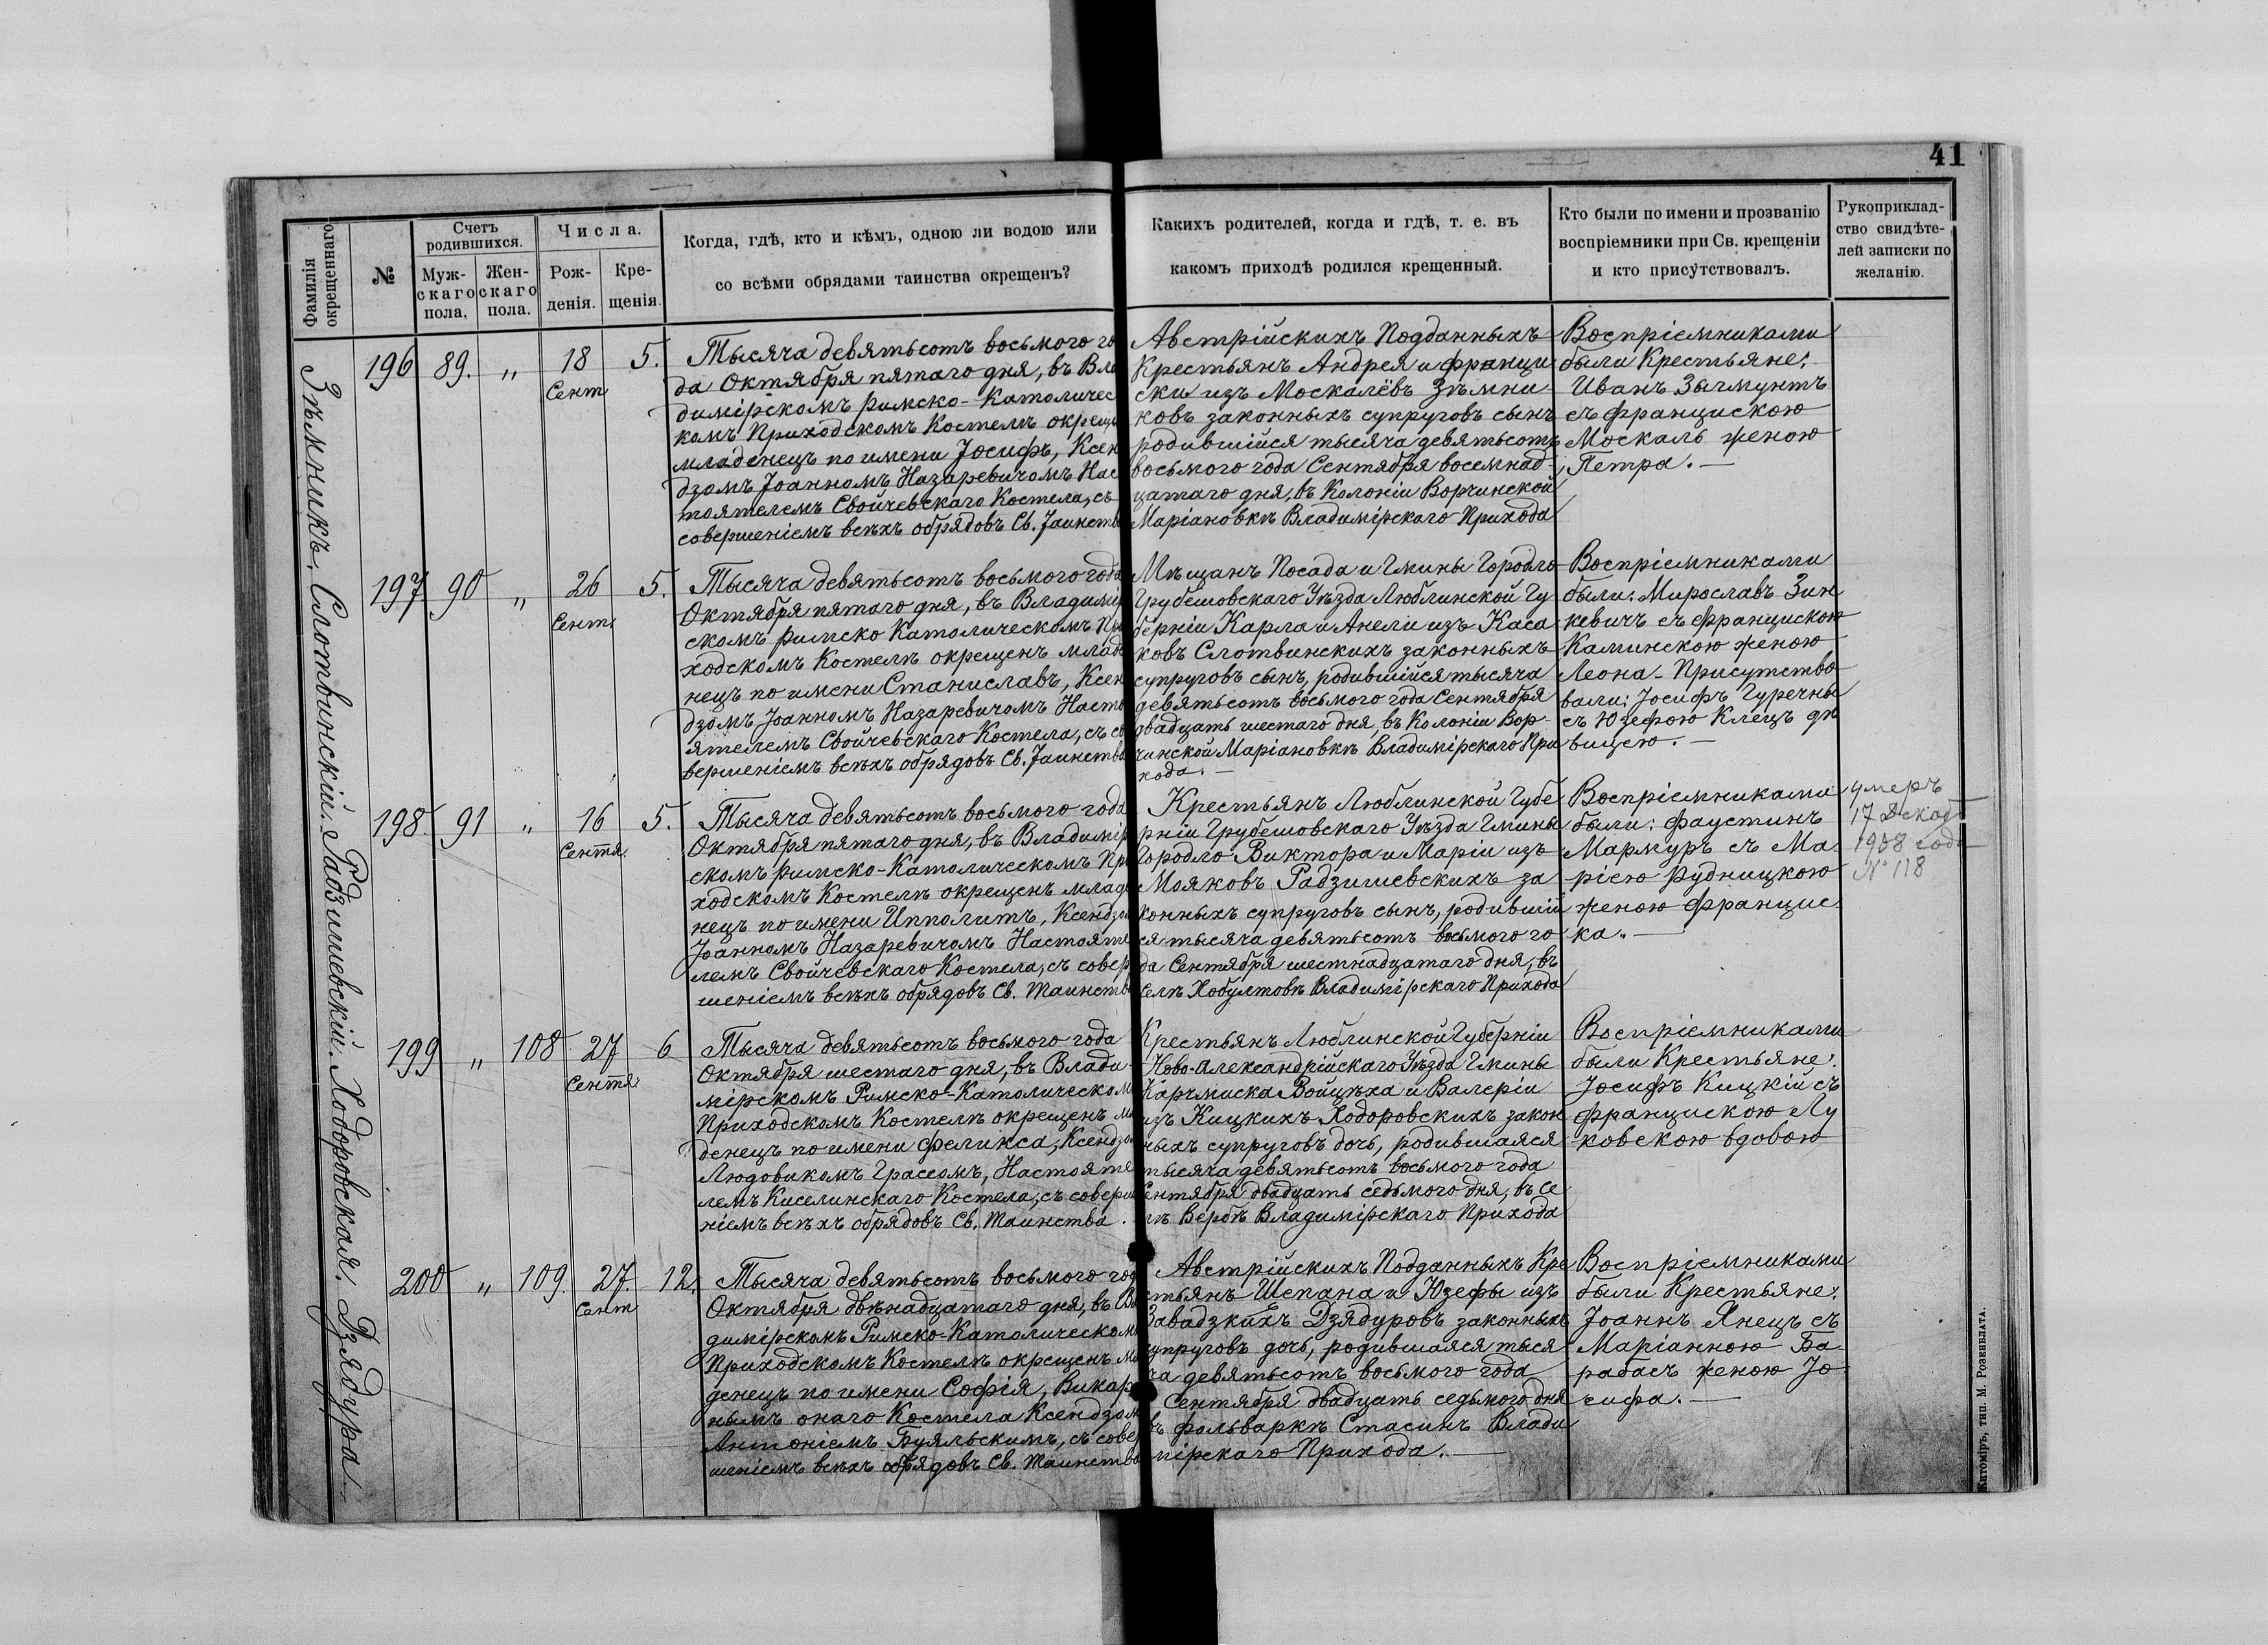 41
Фамилія окрещеннаго.
№
Счетъ родившихся.
Муж-
скаго
пола.
Жен-
скаго
пола.
Числа.
Рож-
денія.
Кре-
щенія.
Когда, гдѣ, кто и кѣмъ, одною ли водою или
со всѣми обрядами таинства окрещенъ?
Какихъ родителей, когда и гдѣ, т. е. въ
какомъ приходѣ родился крещенный.
Кто были по имени и прозванію
воспріемники при Св. крещеніи
и кто присутствовалъ.
Рукоприклад-
ство свидѣте-
лей записки по
желанію.
Зѣмникъ. Слотвинскій. Радзишевскій. Ходоровская. Дзядура
196 89. „ 18 5.
Сент
Тысяча девятьсотъ восьмого го
да Октября пятаго дня, въ Вла
димірскомъ Римско-Католичес
комъ Приходскомъ Костелѣ окреще
младенецъ по имени Іосифъ, Ксен
дзомъ Іоанномъ Назаревичомъ Нас
тоятелемъ Свойчевскаго Костела, съ
совершеніемъ всѣхъ обрядовъ Св. Таинств
Австрійскихъ Подданныхъ
Крестьянъ Андрея и Франци
ски изъ Москалёвъ Зѣмни
ковъ законныхъ супруговъ сынъ
родившійся тысяча девятьсотъ
восьмого года Сентября восемнад-
цатаго дня, въ Колоніи Ворчинской
Маріановкѣ Владимірскаго Прихода
Воспріемниками
были Крестьяне:
Иванъ Зычмунтъ
съ Францискою
Москаль женою
Петра. —
197. 90 „ 26 5.
Сент.
Тысяча девятьсотъ восьмого года
Октября пятаго дня, въ Владимір
скомъ Римско Католическомъ При
ходскомъ Костелѣ окрещенъ младе
нецъ по имени Станиславъ, Ксен
дзомъ Іоанномъ Назаревичомъ Насто
ятелемъ Свойчевскаго Костела, съ со
вершеніемъ всѣхъ обрядовъ Св. Таинства
Мѣщанъ Посада и Гмины Городло
Грубешовскаго Уѣзда Люблинской Гу
берніи Карла и Анели изъ Каса
ковъ Слотвинскихъ законныхъ
супруговъ сынъ, родившійся тысяча
девятьсотъ восьмого года Сентября
двадцать шестаго дня, въ Колоніи Вор-
чинской Маріановкѣ Владимірскаго При
хода. —
Воспріемниками
были: Мирославъ Зин
кевичъ съ Францискою
Каминскою женою
Леона. Присутство
вали: Іосифъ Гуречны
съ Юзефою Клецъ дѣ
вицею. —
198. 91 „ 16 5.
Сентя.
Тысяча девятьсотъ восьмого года
Октября пятаго дня, въ Владимір
скомъ Римско-Католическомъ При
ходскомъ Костелѣ окрещенъ младе
нецъ по имени Ипполитъ, Ксендзо
Іоанномъ Назаревичомъ Настояте
лемъ Свойчевскаго Костела, съ совер
шеніемъ всѣхъ обрядовъ Св. Таинств
Крестьянъ Люблинской Губе
рніи Грубешовскаго Уѣзда Гмины
Городло Виктора и Маріи изъ
Мояковъ Радзишевскихъ за
конныхъ супруговъ сынъ, родившій
ся тысяча девятьсотъ восьмого го
да Сентября шестнадцатаго дня, въ
селѣ Хобултовѣ Владимірскаго Прихода
Воспріемниками
были: Фаустинъ
Мармуръ съ Ма-
ріею Рудницкою
женою Францис
ка. —
умеръ
17 Декаб
1908 года
№ 118
199 „ 108 27 6
Сентя
Тысяча девятьсотъ восьмого года
Октября шестаго дня, въ Влади-
мірскомъ Римско-Католическом
Приходскомъ Костелѣ окрещенъ мла
денецъ по имени Феликса, Ксендзо
Людовикомъ Грассомъ, Настояте
лемъ Киселинскаго Костела, съ соверше
ніемъ всѣхъ обрядовъ Св. Таинства.
Крестьянъ Люблинской Губерніи
Ново-Александрійскаго Уѣзда Гмины
Карчмиска Войцѣха и Валеріи
изъ Кицкихъ Ходоровскихъ закон
ныхъ супруговъ дочь, родившаяся
тысяча девятьсотъ восьмого года
Сентября двадцать седьмого дня, въ Се
лѣ Вербѣ Владимірскаго Прихода
Воспріемниками
были Крестьяне:
Іосифъ Кицкій съ
Францискою Лу
ковскою вдовою
200 „ 109. 27. 12.
Сент
Тысяча девятьсотъ восьмого год
Октября двѣнадцатаго дня, въ Вла
димірскомъ Римско-Католическомъ
Приходскомъ Костелѣ окрещенъ мла
денецъ по имени Софія, Викар
нымъ онаго Костела Ксендзом
Антоніемъ Буяльскимъ, съ совер
шеніемъ всѣхъ обрядовъ Св. Таинства
Австрійскихъ Подданныхъ Кре
стьянъ Шепана и Юзефы изъ
Завадзкихъ Дзядуровъ законныхъ
супруговъ дочь, родившаяся тыся
ча девятьсотъ восьмого года
Сентября двадцать седьмого дня
въ фольваркѣ Стасинъ Влади
мірскаго Прихода. —
Воспріемниками
были Крестьяне:
Іоаннъ Янецъ съ
Маріанною Ба-
рабасъ женою Іо
сифа. —
Житоміръ, тип. М. Розенблата.